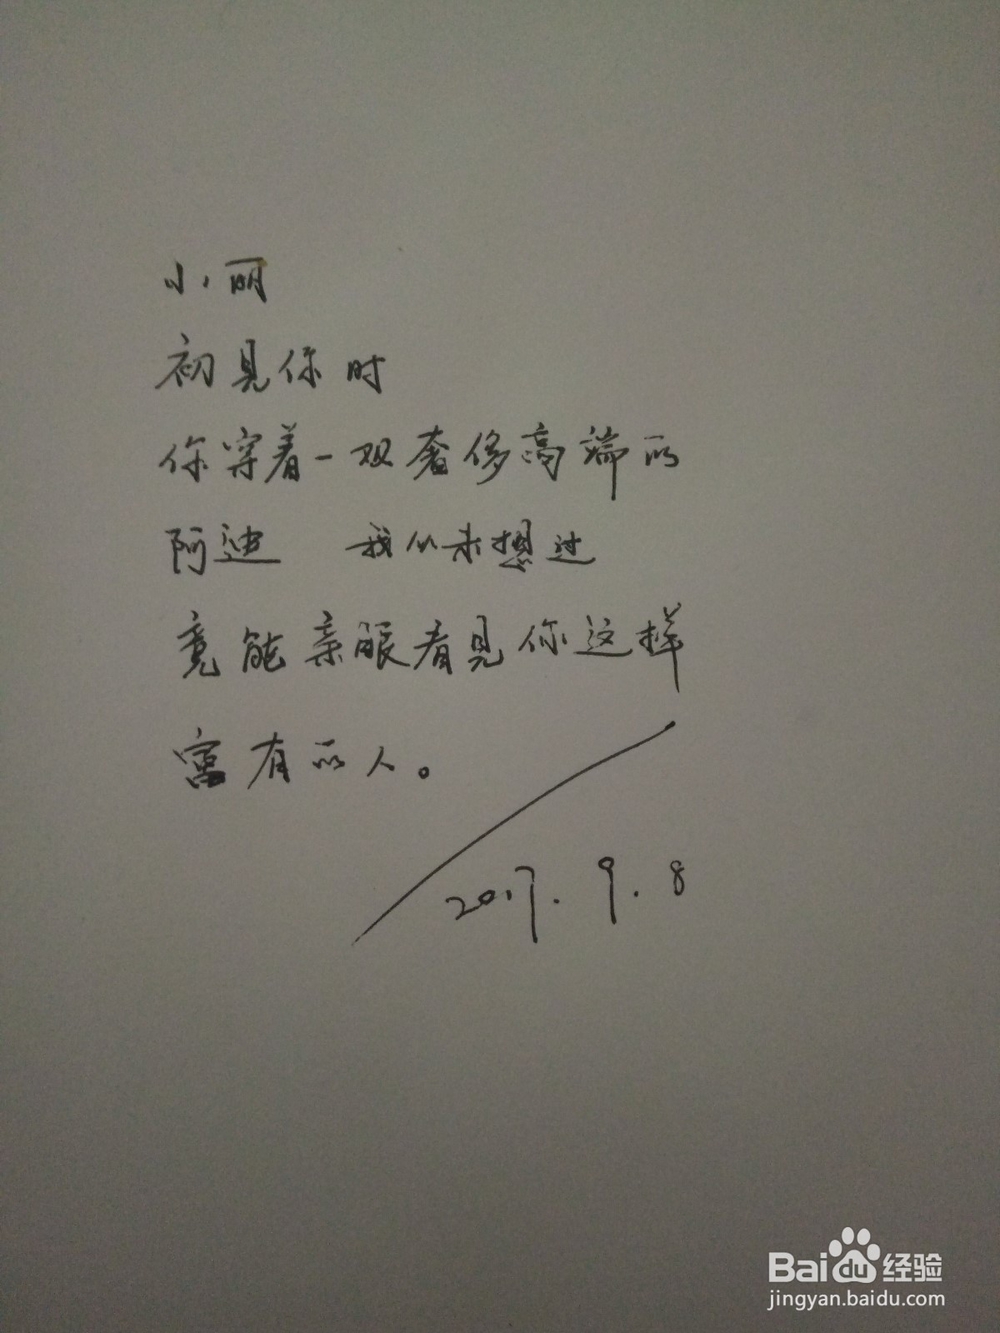 小丽
初见你时
你穿着一双奢侈高端的
阿迪 我从未想过
竟能亲眼看见你这样
富有的人。
2017.9.8
Baidu经验
jingyan.baidu.com